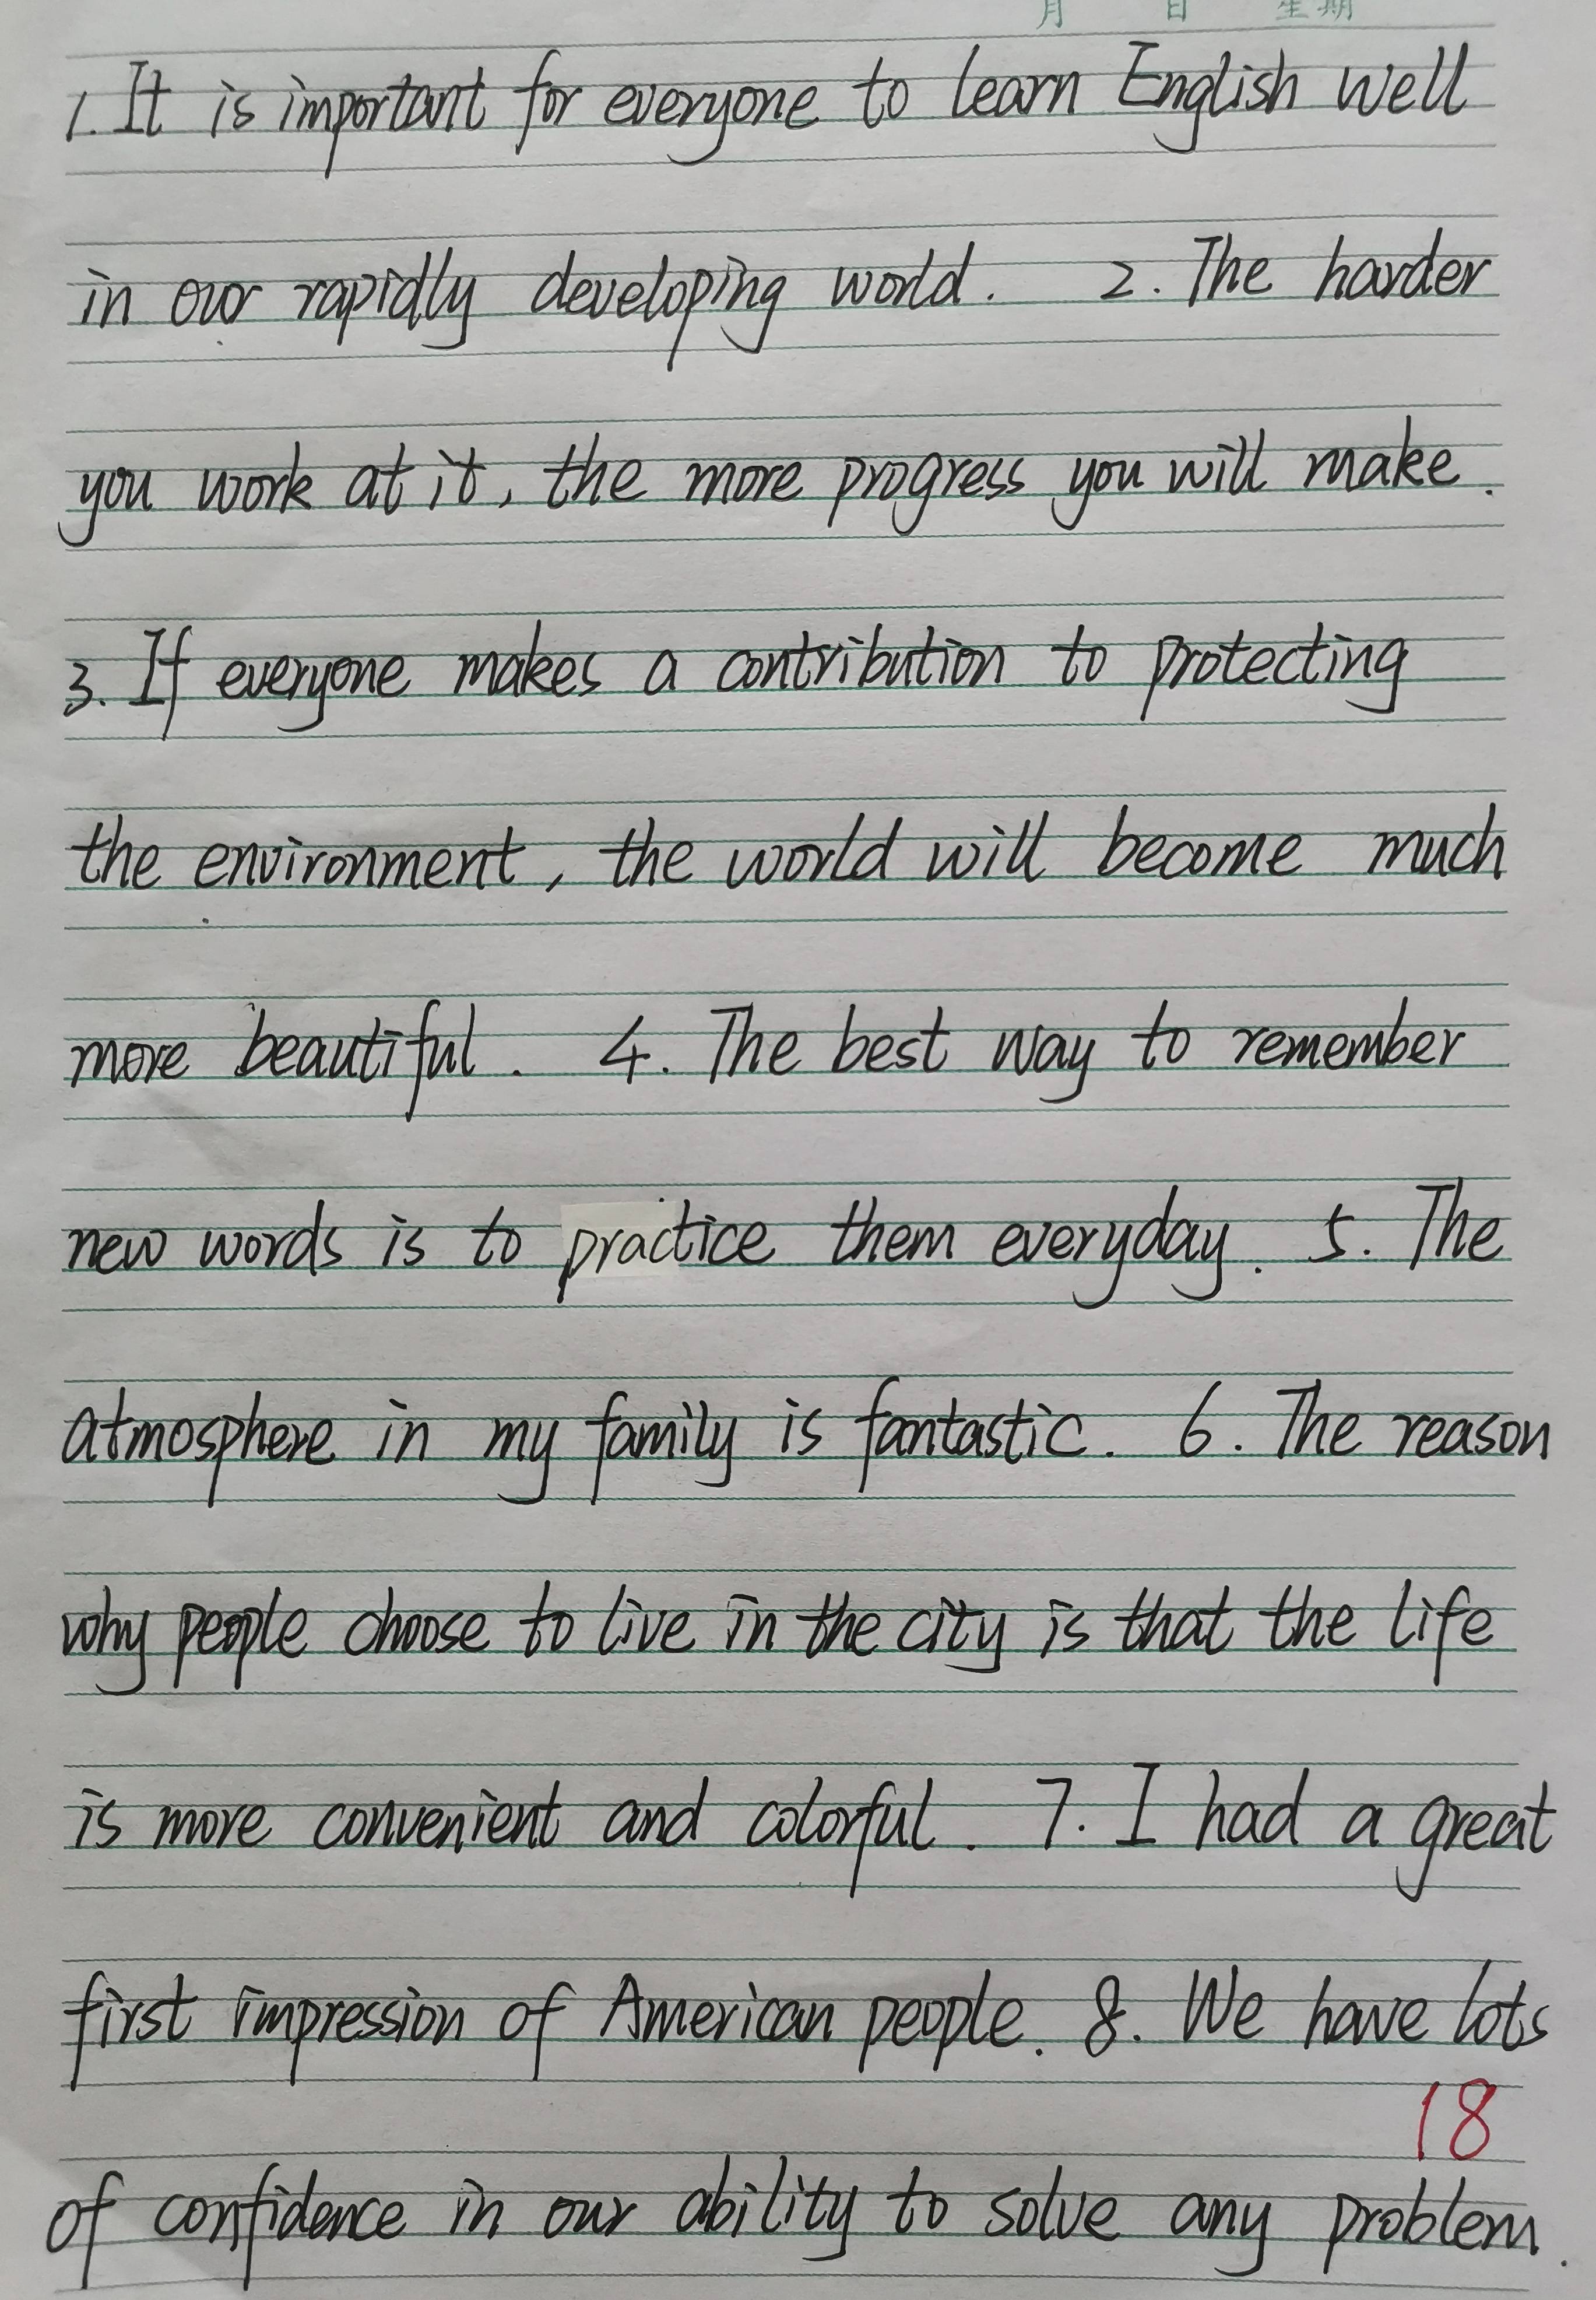 月 日 星期
1. It is important for everyone to learn English well
in our rapidly developing world. 2. The harder
you work at it, the more progress you will make.
3. If everyone makes a contribution to protecting
the environment, the world will become much
more beautiful. 4. The best way to remember
new words is to practice them everyday. 5. The
atmosphere in my family is fantastic. 6. The reason
why people choose to live in the city is that the life
is more convenient and colorful. 7. I had a great
first impression of American people. 8. We have lots
18
of confidence in our ability to solve any problem.